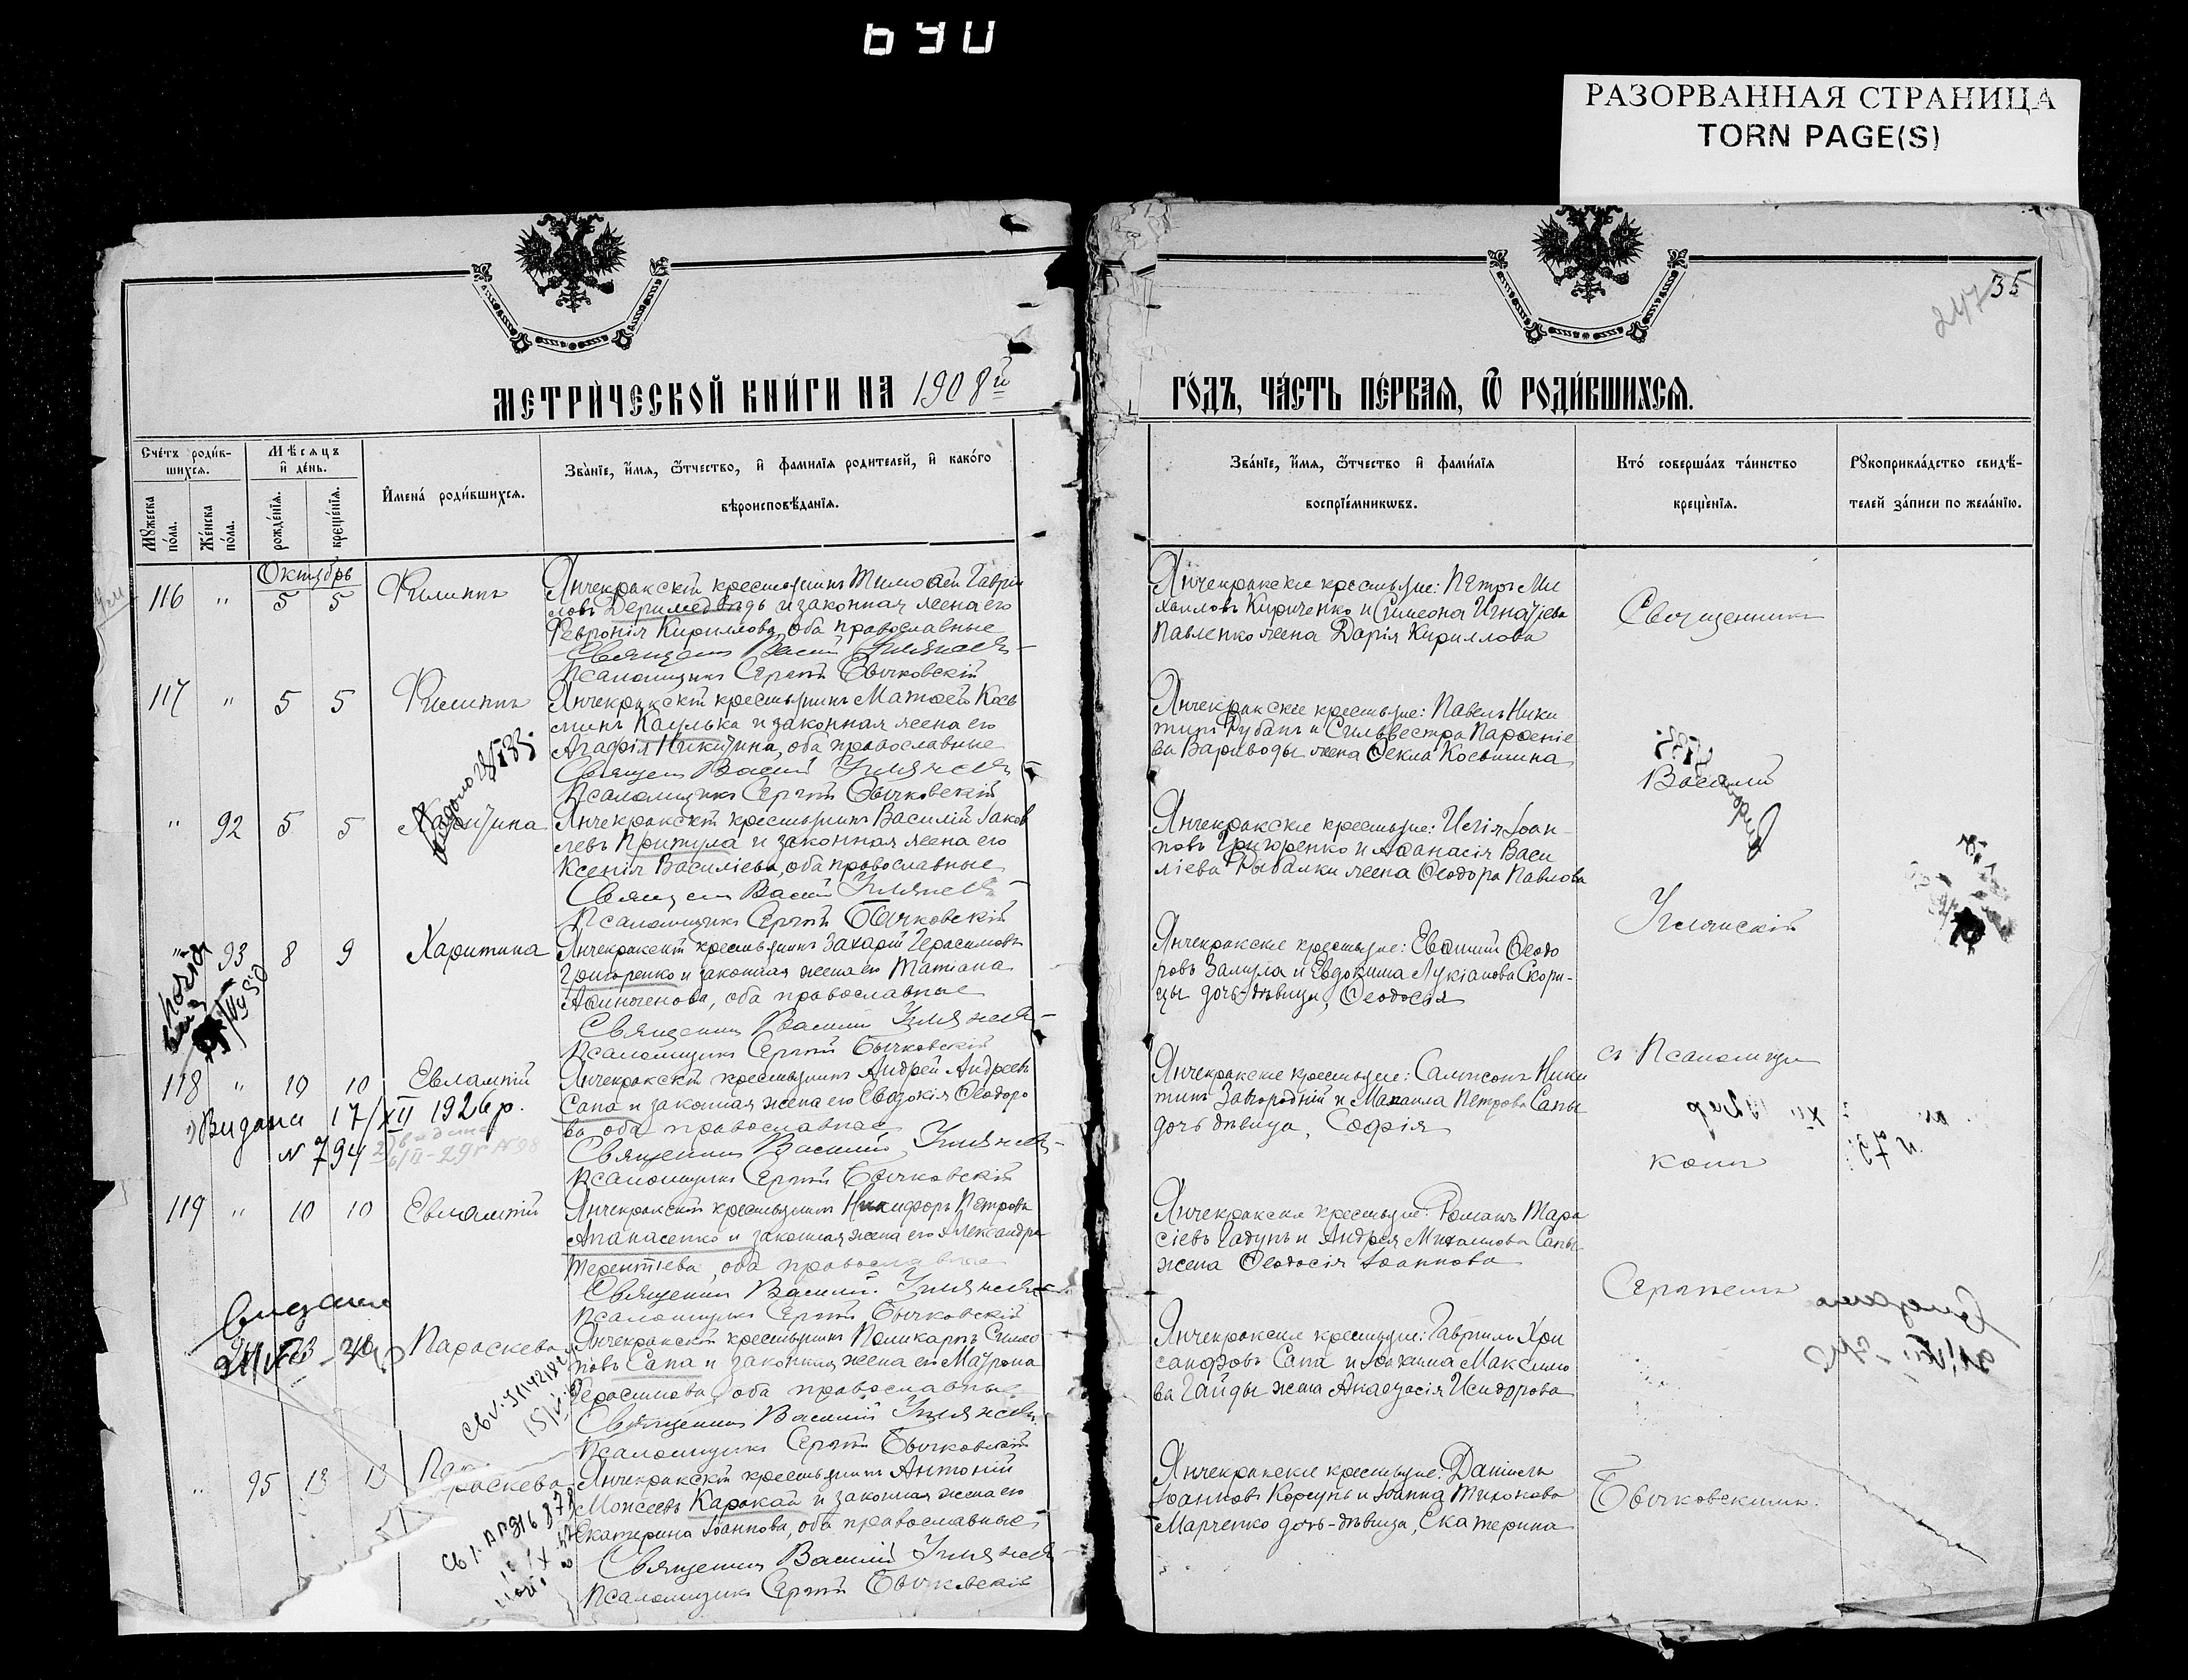 690
РАЗОРВАННАЯ СТРАНИЦА
TORN PAGE(S)
247 35
МЕТРИ́ЧЕСКОЙ КНИ́ГИ НА 1908й
ГО́ДЪ, ЧА́СТЬ ПЕ́РВАЯ, Ѿ РОДИ́ВШИХСЯ.
Сче́тъ роди́в-
шихся.
Мꙋжеска по́ла.
Же́нска по́ла.
Мѣсяцъ
и де́нь.
рожде́нія.
креще́нія.
Имена́ роди́вшихся.
Зва́ніе, и́мя, ѻ́тчество, и фамилія родителей, и како́го
вѣроисповѣданія.
Зва́ніе, и́мя, ѻ́тчество и фами́лія
воспріе́мниковъ.
Кто́ соверша́лъ та́инство
креще́нія.
Рꙋкоприкла́дство свидѣ-
телей за́писи по жела́нію.
Октябрь
116 " 5 5 Филиппъ
Янчекракскій крестьянинъ Тимоѳей Гаврии
ловъ Деримедвѣдь и законная жена его
Феврония Кириллова, оба православные
Священ Васил
Псаломщикъ Сергѣй Бычковскій
Янчекракские крестьяне: Петръ Ми
хаиловъ Кириченко и Симеона Игнатіева
Павленко жена Дарія Кириллова
117 " 5 5 Филиппъ
Янчекракскій крестьянинъ Матѳей Кось
минъ Каулька и законная жена его
Агафія Никитина, оба православные
Священ Васил
Псаломщикъ Сергѣй Бычковскій
Янчекракскіе крестьяне: Павелъ Ники
тинъ Рубанъ и Сильвестра Парѳеніе
ва Вариводы жена Ѳекла Косьмина
" 92 5 5 Харитина
Янчекракскій крестьянинъ Василій Іаков
левъ Притула и законная жена его
Ксенія Василіева, оба православные
Священ Васил
Псаломщикъ Сергѣй Бычковскій
Янчекракскіе крестьяне: Илія Іоан-
новъ Григоренко и Аѳанасія Васи
ліева Рыбалки жена Ѳеодора Павлова
" 93 8 9 Харитина
Янчекракскій крестьянинъ Захарій Герасимовъ
Григоренко и законная жена его Татіана
Аѳиногенова, оба православные
Священникъ Василий
Псаломщикъ Сергѣй Бычковскій
Янчекракскіе крестьяне: Евѳимий Ѳеодо
ровъ и Евдокима Лукіанова Скори-
цы дочь-дѣвица, Ѳеодосія
118 " 10 10 Евлампій
Янчекракскій крестьянинъ Андрей Андреевъ
Сапа и законная жена его Евдокія Ѳеодоро
ва оба православные
Священникъ Василий
Псаломщикъ Сергѣй Бычковскій
Видана 17/XII 1926 р.
N 794
Янчекракскіе крестьяне: Сампсонъ Ники
тинъ Загородній и Михаила Петрова Сапы
дочь дѣвица, Софія
119 " 10 10 Евлампій
Янчекракскій крестьянинъ Никифоръ Петровъ
Апанасенко и законная жена его Александра
Терентіева, оба православные
Священникъ Василий
Псаломщикъ Сергѣй Бычковскій
Янчекракские крестьяне: Романъ Тара
сіевъ Гадунъ и Андрея Михаилова Сапы
жена Ѳеодосія Іоаннова
Видана
Параскева
Янчекракскій крестьянинъ Поликарпъ Симео
новъ Сапа и законная жена его Матрона
Герасимова, оба православные
Священникъ Василий
Псаломщикъ Сергѣй Бычковскій
Янчекракские крестьяне: Гавріилъ Хри
санфовъ Сапа и Іоакима Максимо
ва Гайды жена Анастасія Исидорова
" 95 13 13 Параскева
Янчекракскій крестьянинъ Антоній
Моисеевъ Каракай и законная жена его
Екатерина Іоаннова, оба православные
Священникъ Василий
Псаломщикъ Сергѣй Бычковскій
Янчекракские крестьяне: Даніилъ
Іоанновъ Корсунь и Іоанна Тихонова
Марченко дочь-дѣвица, Екатерина
Священникъ
Василий
съ Псаломщи
комъ
Сергѣемъ
Бычковскимъ.